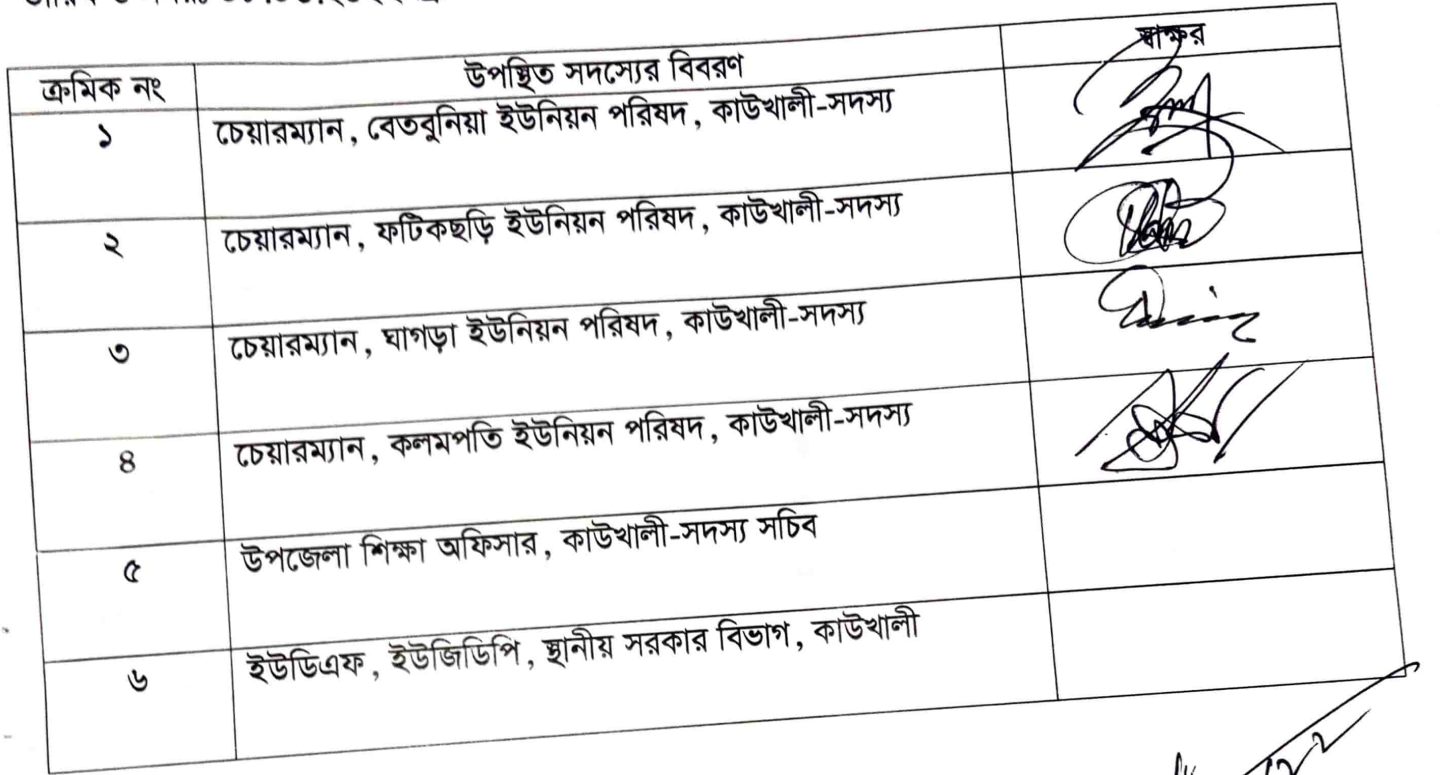 ক্রমিক নং উপস্থিত সদস্যের বিবরণ স্বাক্ষর
১ চেয়ারম্যান, বেতবুনিয়া ইউনিয়ন পরিষদ, কাউখালী-সদস্য
২ চেয়ারম্যান, ফটিকছড়ি ইউনিয়ন পরিষদ, কাউখালী-সদস্য
৩ চেয়ারম্যান, ঘাগড়া ইউনিয়ন পরিষদ, কাউখালী-সদস্য
৪ চেয়ারম্যান, কলমপতি ইউনিয়ন পরিষদ, কাউখালী-সদস্য
৫ উপজেলা শিক্ষা অফিসার, কাউখালী-সদস্য সচিব
৬ ইউডিএফ, ইউজিডিপি, স্থানীয় সরকার বিভাগ, কাউখালী